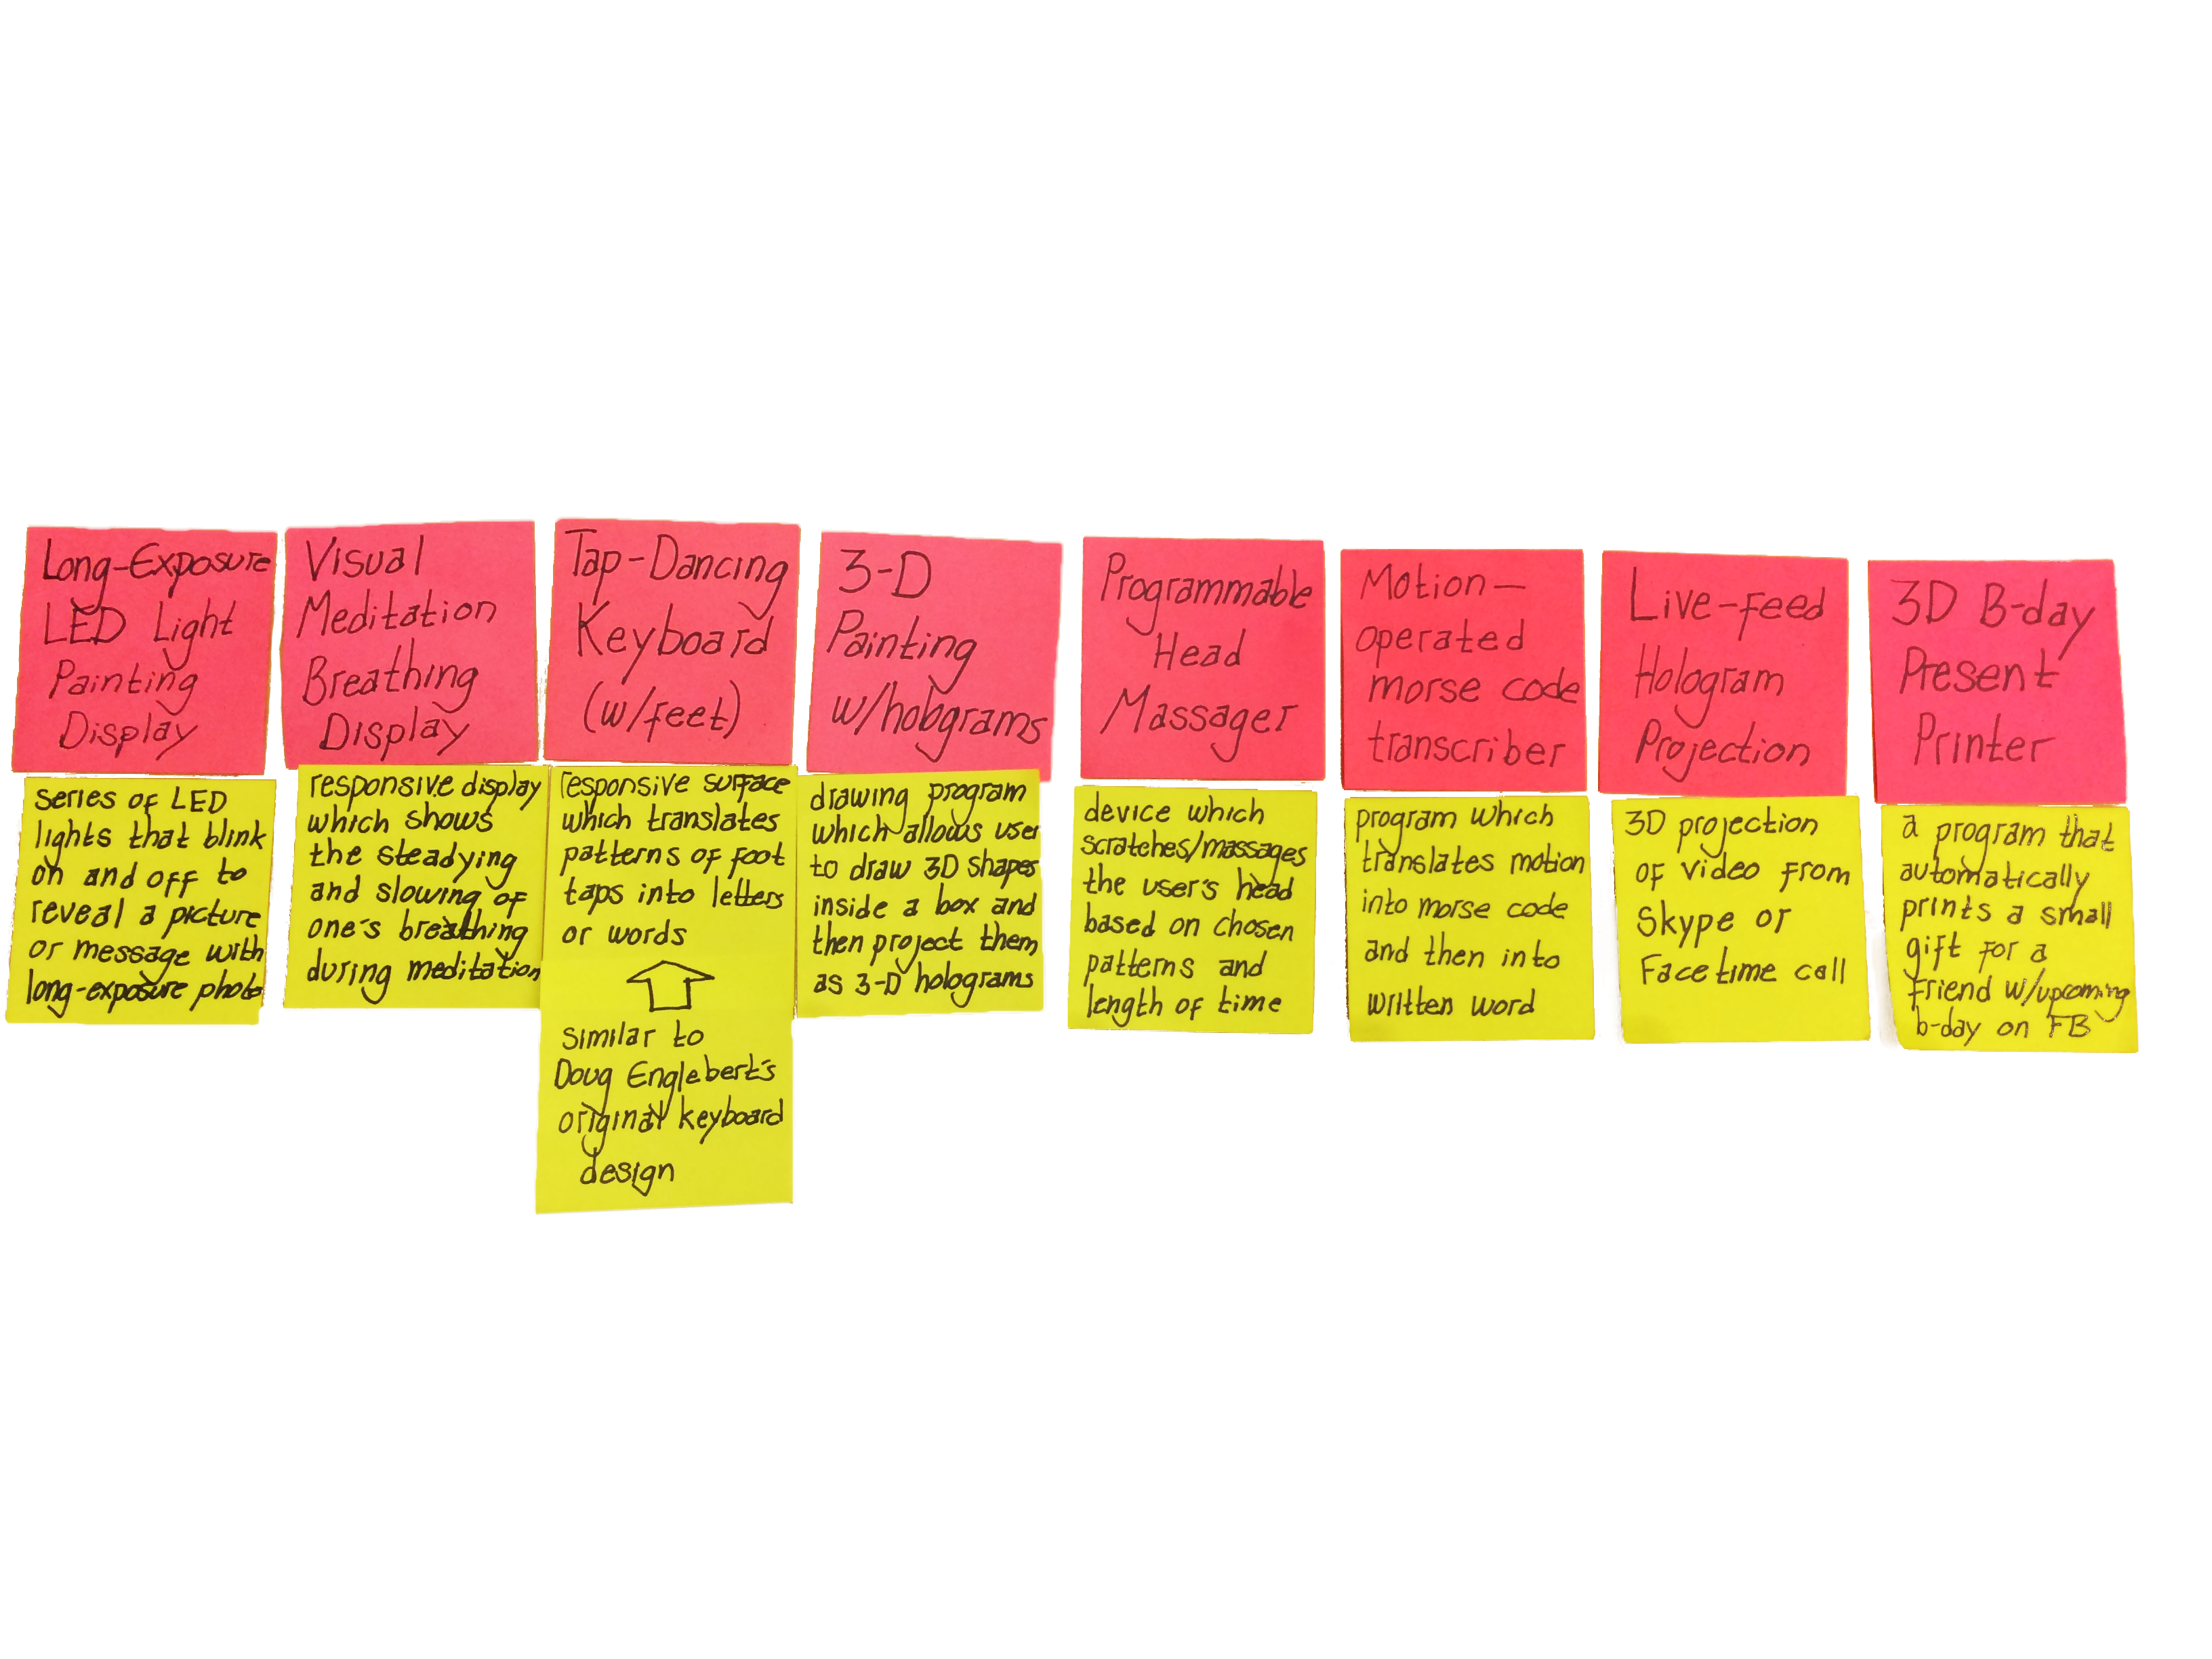 Long-Exposure
LED Light
Painting
Display
series of LED
lights that blink
on and off to
reveal a picture
or message with
long-exposure photo
Visual
Meditation
Breathing
Display
responsive display
which shows
the steadying
and slowing of
one's breathing
during meditation
Tap-Dancing
Keyboard
(w/feet)
responsive surface
which translates
patterns of foot
taps into letters
or words
similar to
Doug Englebert's
original keyboard
design
3-D
Painting
w/holograms
drawing program
which allows user
to draw 3D shapes
inside a box and
then project them
as 3-D holograms
Programmable
Head
Massager
device which
scratches/massages
the user's head
based on chosen
patterns and
length of time
Motion-
operated
morse code
transcriber
program which
translates motion
into morse code
and then into
written word
Live-feed
Hologram
Projection
3D projection
of video from
Skype or
Facetime call
3D B-day
Present
Printer
a program that
automatically
prints a small
gift for a
friend w/upcoming
b-day on FB